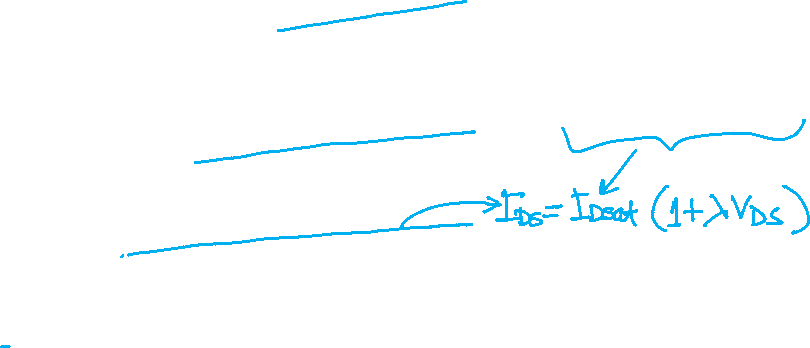 I_DS = I_Dsat (1+λV_DS)